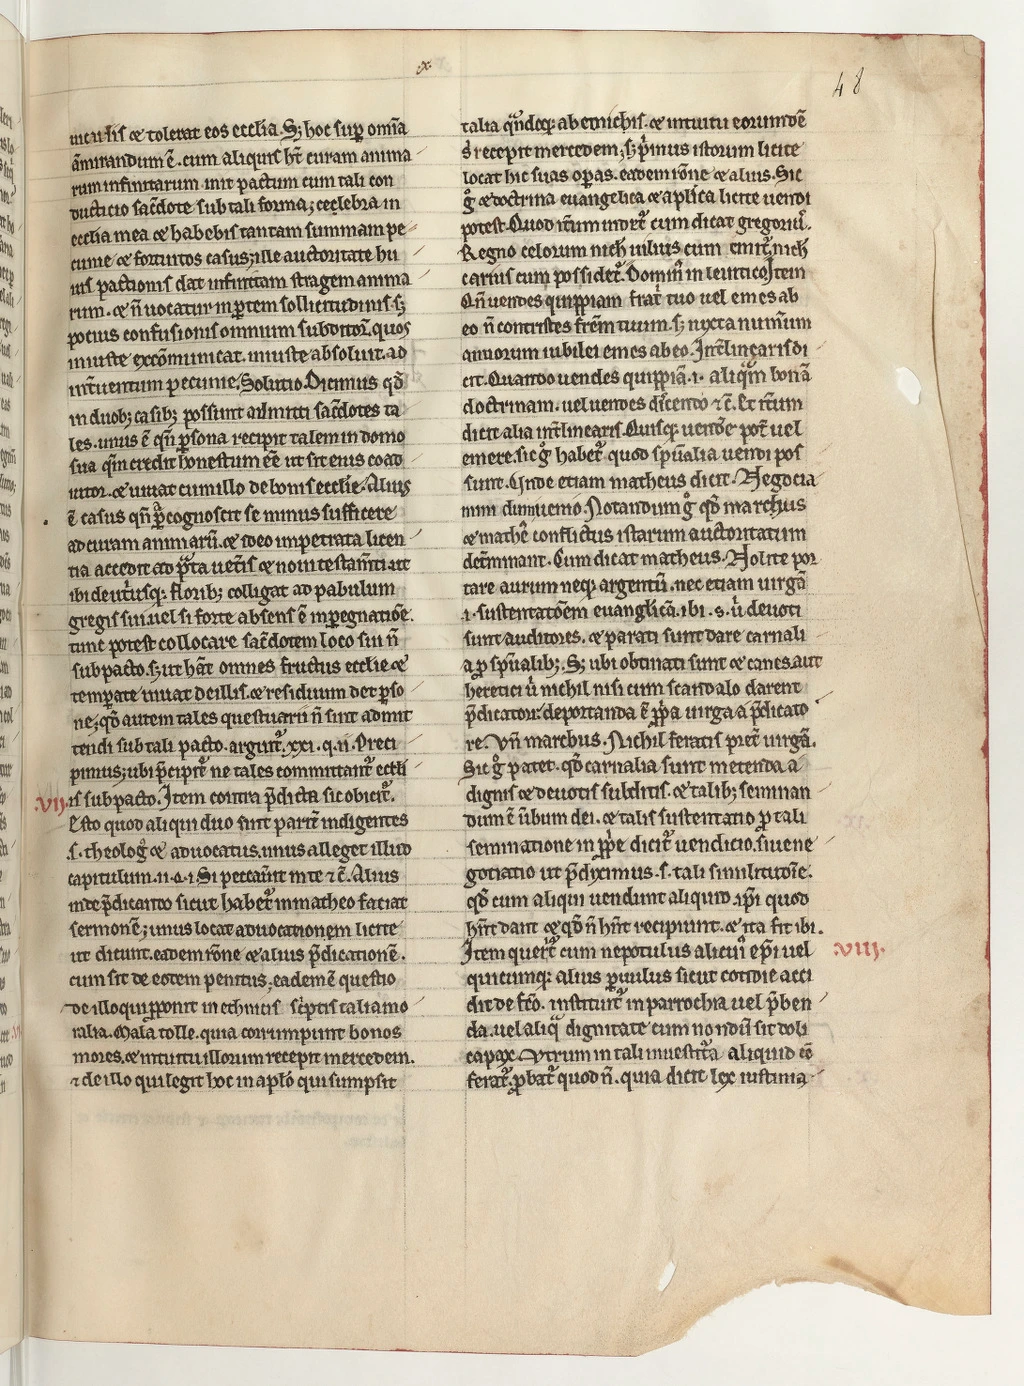 .x.
48
⁊ tolerat eos ecclia. Sꝫ hoc suꝑ om̄ia
āmirandum ē. cum aliquis hr̄t curam anima
rum infinitarum init pactum cum tali con
ducticio sac̄dote sub tali forma; celebra in
ecclia mea ⁊ habebis tantam summam pe
cunie ⁊ fortuitos casus; ille auctoritate hu
ius pactionis dat infinitam stragem anima
rum. ⁊ n̄ uocatur in ꝑtem sollicitudinis sꝫ
pocius confusionis omnium subditoꝝ. quos
iniuste excōmunicat. iniuste absoluit. ad
int̄uentum pecunie. Solutio. Dicimus qd̄
in duobꝫ casibꝫ possunt admitti sac̄dotes ta
les. unus ē qn̄ ꝑsona recipit talem in domo
sua qm̄ credit honestum ēē ut sit eius coad
iutor. ⁊ uiuat cum illo de bonis ecclie. Alius
ē casus qn̄ p̄cognoscit se minus sufficere
ad curam animarū. ⁊ ideo impetrata licen
tia accedit ad p̄ta uet̄is ⁊ noui testam̄ti ut
ibi de ut̄usqꝫ floribꝫ colligat ad pabulum
gregis sui. uel si forte absens ē in ꝑegnatiōe.
tunc potest collocare sac̄dotem loco sui n̄
sub pacto. sꝫ ut hāt omnes fructus ecclie ⁊
temꝑate uiuat de illis. ⁊ residuum det ꝑso
ne; qd̄ autem tales questuarii n̄ sint admit
tendi sub tali pacto. arguit᷑. xxi. q. ii. Preci
pimus; ubi p̄cipit᷑ ne tales committant᷑ eccli
.VII.
is sub pacto. Item contra p̄dicta sic obicit᷑.
Esto quod aliqui duo sint parit̄ indigentes
.s. theolog᷑ ⁊ aduocatus. unus alleget illud
capitulum. ii. q. i Si peccau̅it in te ⁊c̄. Alius
inde p̄dicando sicut habet᷑ in matheo faciat
sermonē; unus locat aduocationem licite
ut dicunt. eadem rōne ⁊ alius p̄dicationē.
cum sit de eodem penitus; eadem ē questio
de illo qui ꝓponit in ethnicis sc̄ptis talia mo
ralia. Mala tolle. quia corrumpunt bonos
mores. ⁊ intuitu illorum recepit mercedem.
⁊ de illo qui legit hoc in apl̄o qui sumpsit
talia qn̄doqꝫ ab ethnichis. ⁊ intuitu eorumdē
recepit mercedem; sꝫ p̄mus istorum licite
locat hic suas oꝑas. eadem rōne ⁊ alius. Sic
g᷑ ⁊ doctrina euangelica ⁊ apl̄ica licite uendi
potest. Quod it̄um cum dicat gregoriꝰ.
Regno celorum nich̄ uilius cum emit᷑. nich̄
carius cum possidet᷑. Dominꝰ in leuitico. Item
Qn̄ uendes quippiam frat̄ tuo uel emes ab
eo n̄ contristes frēm tuum. sꝫ iuxta num̄um
annorum iubilei emes ab eo. Int̄linearis di
cit. Quando uendes quippiā. .i. aliqͣm bonā
doctrinam. uel uendes discendo ⁊c̄. Et it̄um
dicit alia int̄linearis. Quisqꝫ uende pot̄ uel
emere. sic g᷑ habet᷑ quod sp̄ualia uendi pos
sunt. Vnde etiam matheus dicit. Negocia
mini dum uenio. Notandum g᷑ qd̄ marchus
⁊ math̄e conflictus istarum auctoritatum
det̄minant. Cum dicat matheus. Nolite por
tare aurum neqꝫ argentū. nec etiam uirgā
.i. sustentatōem euanglicā. ibi .s. u̅ deuoti
sunt auditores. ⁊ parati sunt dare carnali
a ꝓ sp̄ualibꝫ. Sꝫ ubi obstinati sunt ⁊ canes. aut
heretici u̅ nichil nisi cum scandalo darent
p̄dicatori deportanda ē ꝓp̄a uirga a p̄dicato
re. Vn̄ marchus. Nichil feratis p̄ter uirgā.
Sic g᷑ patet. qd̄ carnalia sunt metenda a
dignis ⁊ deuotis subditis. ⁊ talibꝫ seminan
dum ē u̅bum dei. ⁊ talis sustentatio ꝓ tali
seminatione in ꝓp̄e dicit᷑ uendicio. siue ne
gotiatio ut p̄diximus .s. tali similitudīe.
qd̄ cum aliqui uendunt aliquid. ip̄i quod
hn̄t dant ⁊ qd̄ n̄ hn̄t recipiunt. ⁊ ita fit ibi.
.VIII.
Item querit᷑ cum nepotulus alicuiꝰ ep̄i uel
quicumqꝫ alius ꝑuulus sicut cotidie acci
dit de fc̄o. instituit᷑ in parrochia uel p̄ben
da. uel aliqͣ dignitate cum nondū sit doli
capax. Vtrum in tali inuestit̄a aliquid cō
ferat᷑. ꝓbat᷑ quod n̄. quia dicit lex iustinia